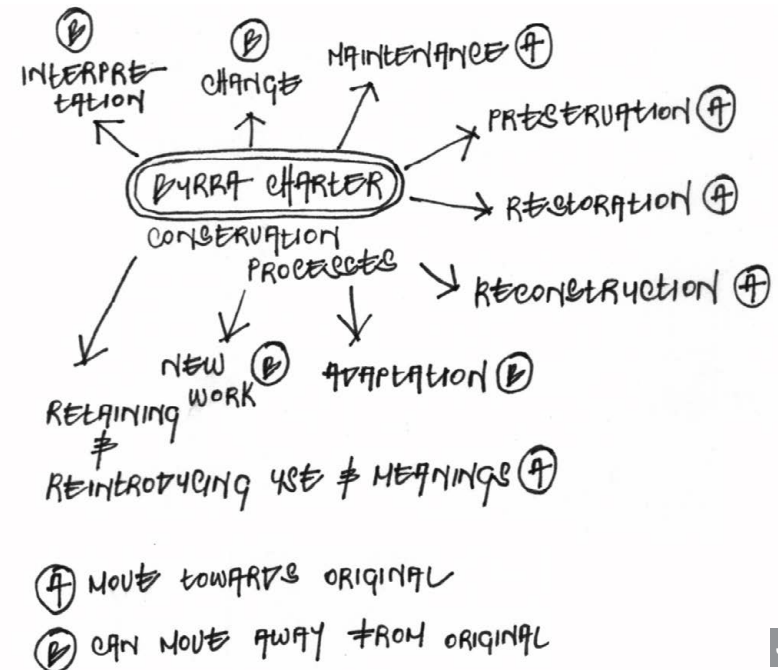 B
INTERPRE-
TATION
B
CHANGE
MAINTENANCE A
PRESERVATION A
BURRA CHARTER
RESTORATION A
CONSERVATION
PROCESSES
RECONSTRUCTION A
NEW B
WORK
ADAPTATION B
RETAINING
&
REINTRODUCING USE & MEANINGS A
A MOVE TOWARDS ORIGINAL
B CAN MOVE AWAY FROM ORIGINAL